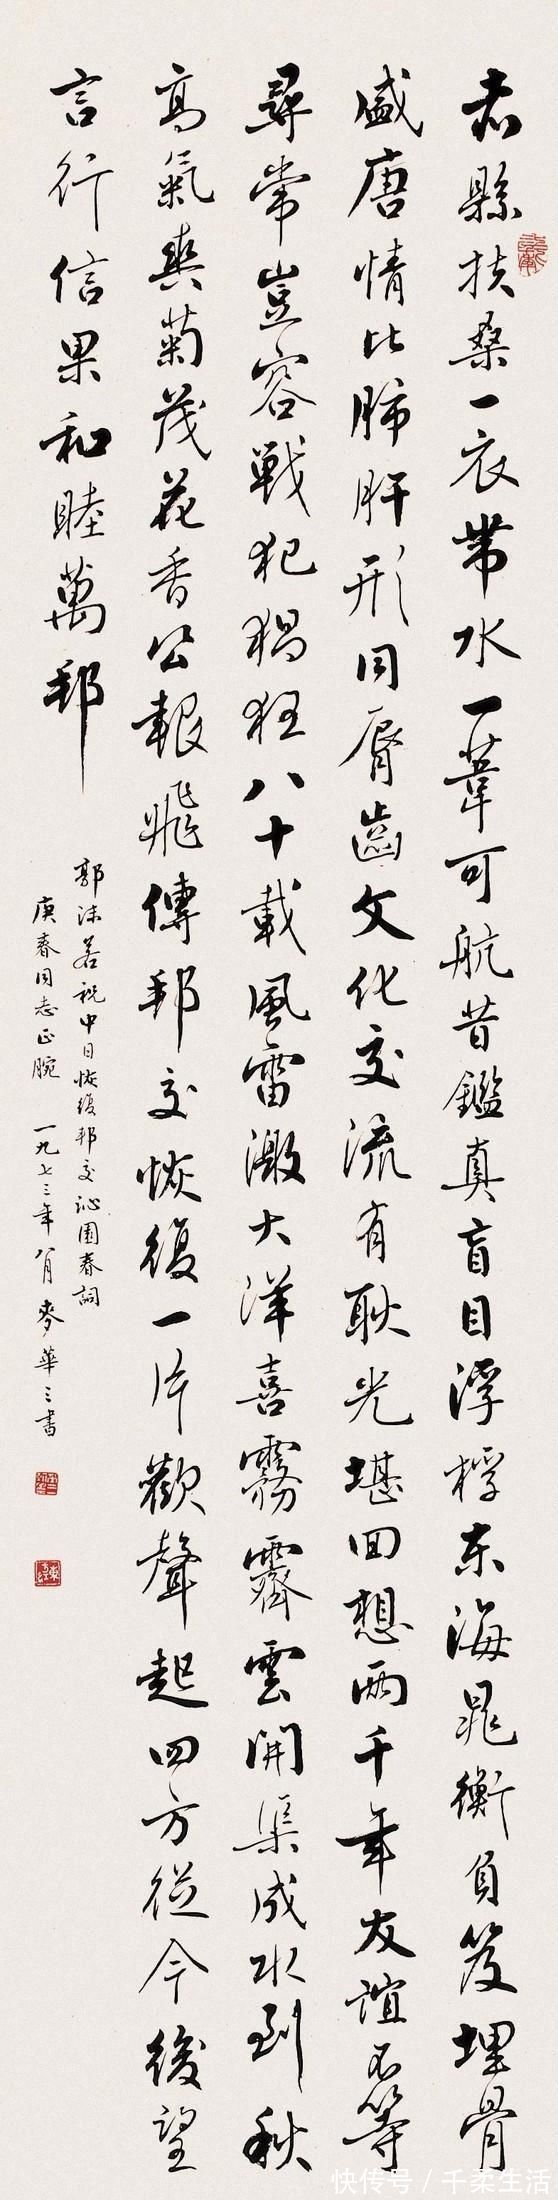 赤縣扶桑一衣帶水一葦可航昔鑑真盲目浮桴東海晁衡負笈埋骨
盛唐情比肺肝形同唇齒文化交流有耿光堪回想兩千年友誼不等
尋常豈容戰犯猖狂八十載風雷激大洋喜霧霽雲開渠成水到秋
高氣爽菊茂花香公報飛傳邦交恢復一片歡聲起四方從今後望
言行信果和睦萬邦
郭沫若祝中日恢復邦交沁園春詞
庚春同志正腕 一九七三年八月麥華三書
快传号/千柔生活